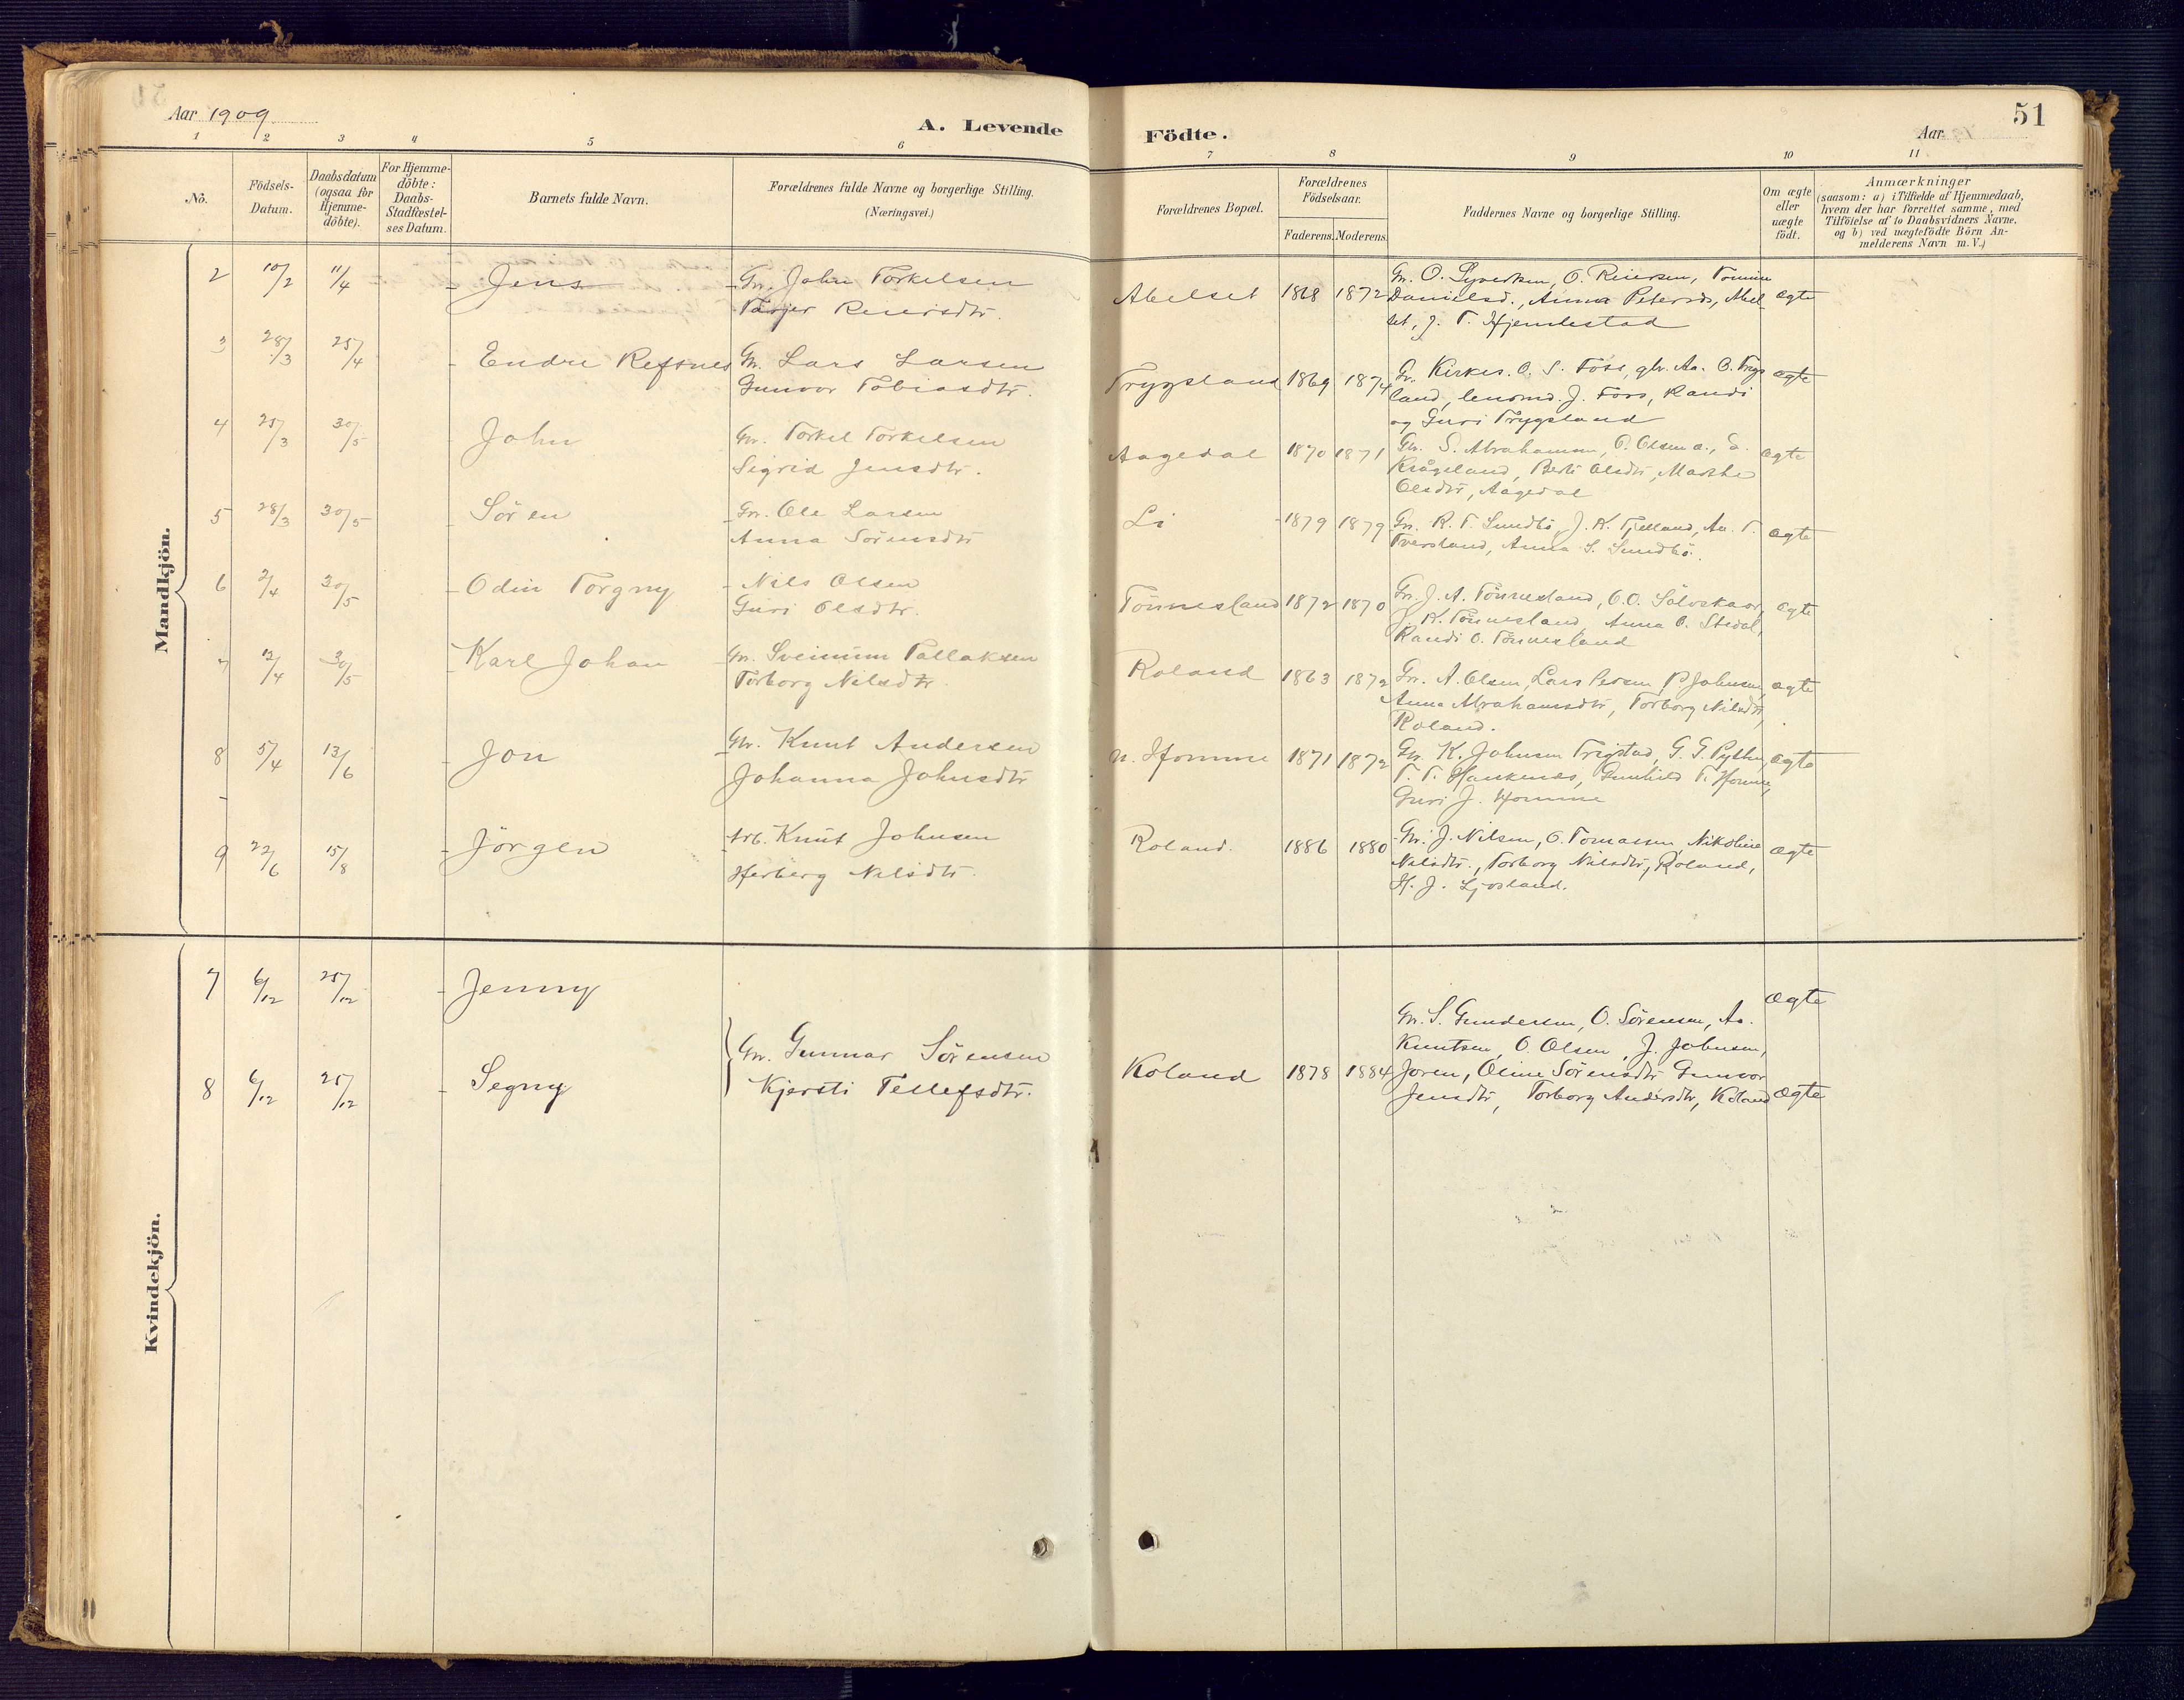 Aar 1909
A. Levende Födte.
Aar
51
1 2 3 4 5 6 7 8 9 10 11
No.
Födsels-
Datum.
Daabsdatum
(ogsaa for
Hjemme-
döbte).
For Hjemme-
döbte:
Daabs-
Stadfæstel-
ses Datum.
Barnets fulde Navn.
Forældrenes fulde Navne og borgerlige Stilling.
(Næringsvei.)
Forældrenes Bopæl.
Forældrenes
Födselsaar.
Faderens. Moderens.
Faddernes Navne og borgerlige Stilling.
Om ægte
eller
uægte
födt.
Anmærkninger
(saasom: a) i Tilfælde af Hjemmedaab,
hvem der har forrettet samme, med
Tilföielse af to Daabsvidners Navne.
og b) ved uægtefödte Börn An-
melderens Navn m. V.)
Mandkjön.
2 10/2 11/4 - Jens - Gr. John Torkelsen
Tarjer Reiersdtr.
Abelset 1868 1872
Gr. O. Syvertsen, O. Reiersen, Tomine
Danielsd., Anna Petersdr, Abel-
set, J. T. Hjemlestad
ægte
3 28/3 25/4 - Endre Refsnes Gr. Lars Larsen
Gunvor Tobiasdtr.
Trygsland 1869 1874
Gr. Kirkes. O. S. Foss, gbr. Aa. O. Trygs
land, lensmd. J. Foss, Randi
og Guri Trygsland
ægte
4 25/3 30/5 John Gr. Torkel Torkelsen
Sigrid Jensdtr.
Aagedal 1870 1871
Gr. S. Abrahamsen, O. Olsen
Kråge­land, Berte Olsdtr, Marthe
Olsdtr, Aagedal
ægte
5 28/3 30/5 - Sören - Gr. Ole Larsen
Anna Sörensdtr
Li 1879 1879
Gr. R. T. Sundbö J. K. Tjelland, Aa. T.
Tversland, Anna S. Sundbö.
ægte
6 2/4 30/5 - Odin Torgny - Nils Olsen
Guri Olsdtr.
Tönnesland 1872 1870
Gr. J. A. Tönnesland, O. O. Sölvskaar,
J. K. Tönnesland, Anna O. Stedal,
Randi O. Tönnesland
ægte
7 12/4 30/5 - Karl Johan - Gr. Sveinum Tallaksen
Torborg Nilsdtr.
Roland 1863 1872
Gr. A. Olsen, Lars Persen, P. Johnsen,
Anna Abrahamsdtr, Torborg Nilsdtr,
Roland.
ægte
8 5/4 13/6 - Jon Gr. Knut Andersen
Johanna Johnsdtr
n. Homme 1871 1872
Gr. K. Johnsen Trigstad, G. G. Pytten,
T. T. Haukenes, Gunhild T. Homme,
Guri J. Homme
ægte
9 22/6 15/8 - Jörgen - Arb. Knut Johnsen
Herborg Nilsdtr.
Roland. 1886 1880
Gr. J. Nilsen, O. Tomassen, Nikoline
Nilsdtr., Torborg Nilsdtr, Roland,
H. J. Ljosland.
ægte
Kvindekjön.
7 6/12 25/12 - Jenny ægte
8 6/12 25/12 - Segny
Gr. Gunnar Sörensen
Kjersti Tellefsdtr.
Koland 1878 1884
Gr. S. Gundersen, O. Sörensen, Aa.
Knutsen, O. Olsen, J. Johnsen,
Joren, Oline Sörensdtr Gunvor
Jensdtr, Torborg Andersdtr, Koland
ægte